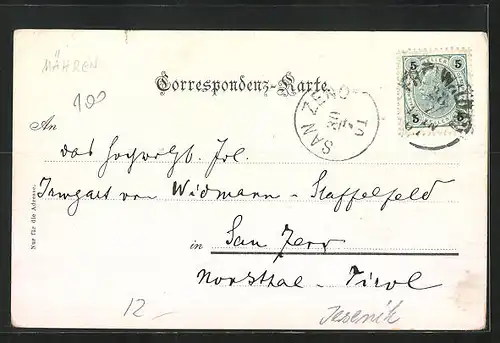 MÄHREN
100
Correspondenz-Karte
5 5
5 5
SAN ZENO
An
das hochwohlg. Frl.
Irmgart von Widmann-Staffelfeld
in San Zeno
Nonsthal-Tirol
Nur für die Adresse.
12-
Jesenik